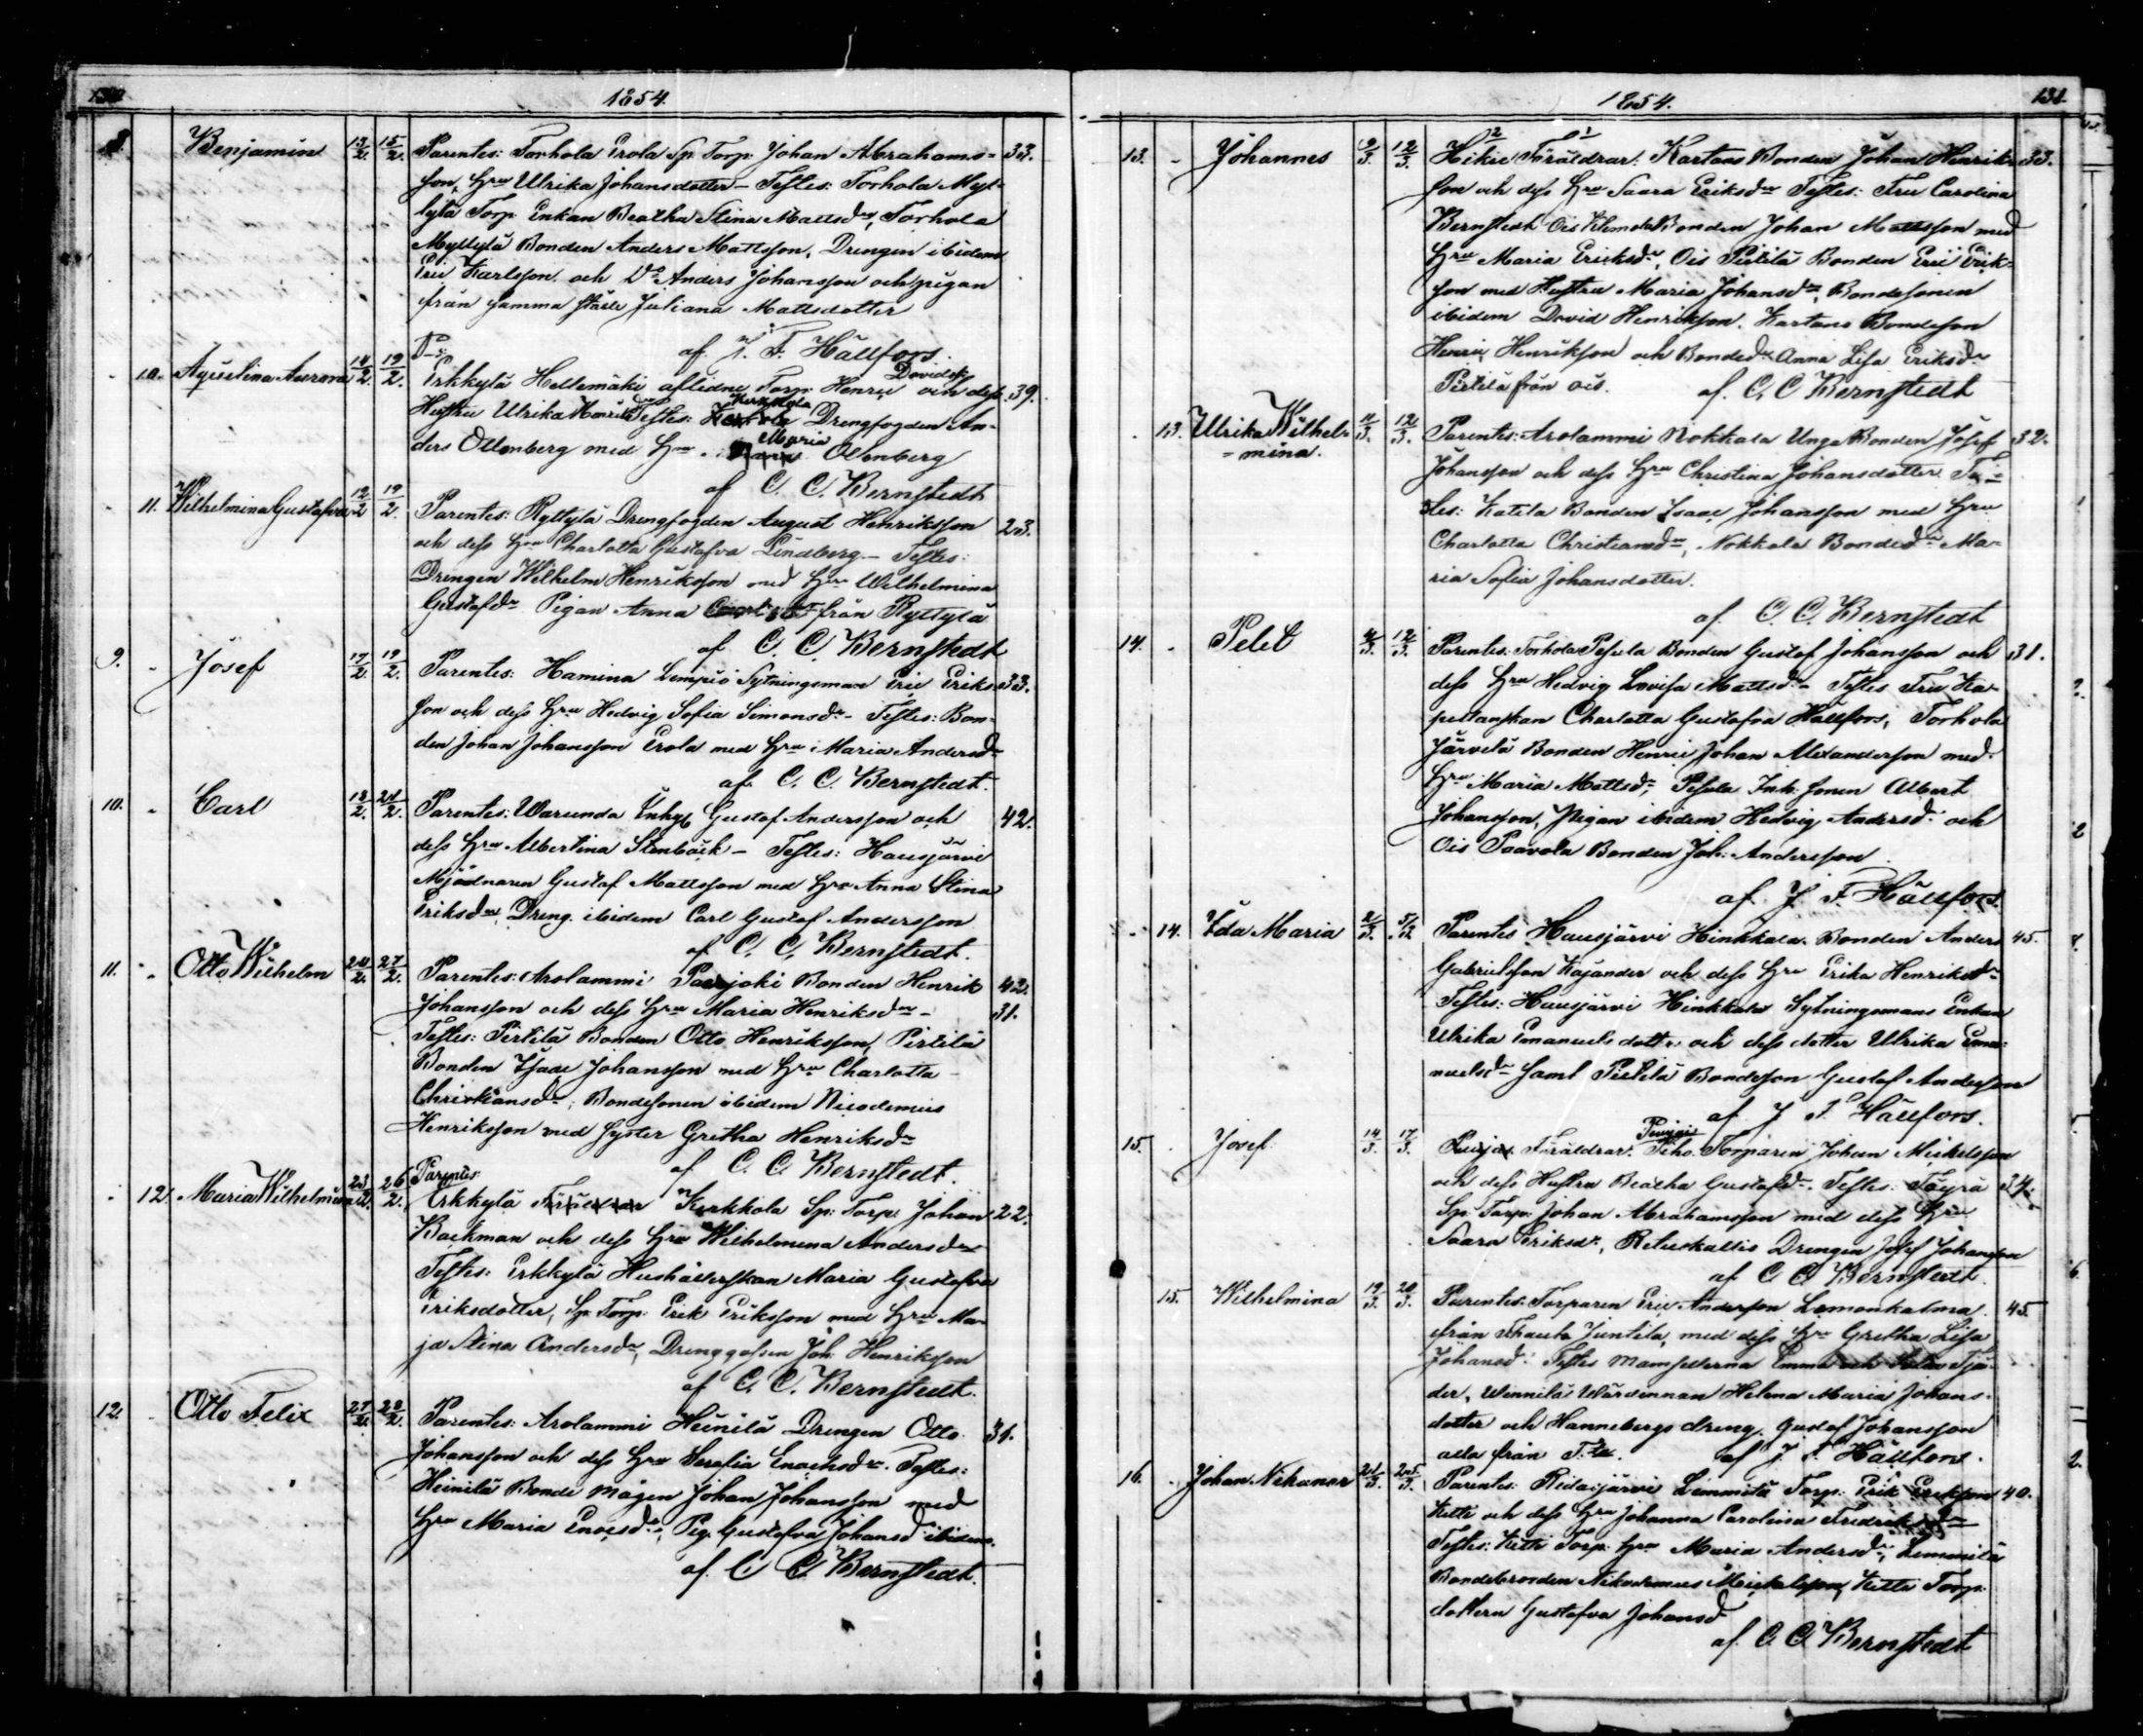 130
1854.
8. Benjamin 13/2. 15/2. Parentes: Torhola Erola Sp. Torp. Johan Abrahams= 33.
son, Hru Ulrika Johansdotter – Testes: Torhola Myl-
lylä Torp. Enkan Beatha Stina Mattsdr, Torhola
Myllylä Bonden Anders Mattsson, Drengen ibidem
Eric Karlsson och Do Anders Johansson och pigan
från samma ställe Juliana Mattsdotter
af J. F. Hällfors.
10. Agustina Aurora 14/2. 19/2. Erkkylä Hellemäki aflidne Torp. Henric Davidss. och dess 39.
Hustru Ulrika Testes: Kerkkola Drengfogden An-
ders Ollenberg med Hru Maria Ollenberg
af C. C. Bernstedt
11. Wilhelmina Gustafva 12/2 19/2. Parentes: Ryttylä Drengfogden August Henriksson 23.
och dess Hru Charlotta Gustafva Lindberg – Testes:
Drengen Wilhelm Henriksson med Hru Wilhelmina
Gustafdr Pigan Anna från Ryttylä
af C. C. Bernstedt
9. Josef 17/2. 19/2. Parentes: Hamina Lempiö Sytningsman Eric Eriks- 33.
son och dess Hru Hedvig Sofia Simonsdr – Testes: Bon-
den Johan Johansson Erola med Hru Maria Andersdr
af C. C. Bernstedt.
10. Carl 18/2. 24/2. Parentes: Warunda Inhys Gustaf Andersson och 42.
dess Hru Albertina Stenbäck – Testes: Hausjärvi
Mjödnaren Gustaf Mattsson med Hru Anna Stina
Eriksdr, Dreng. ibidem Carl Gustaf Andersson
af C. C. Bernstedt.
11. Otto Wilhelm 24/2. 27/2. Parentes: Arolammi Paxjoki Bonden Henrik 42.
Johansson och dess Hru Maria Henriksdr – 31.
Testes: Pirtilä Bonden Otto Henriksson, Pirtilä
Bonden Isaac Johansson med Hru Charlotta
Christiansdr, Bondesonen ibidem Nicodemus
Henriksson med syster Gretha Henriksdr
af C. C. Bernstedt.
12. Maria Wilhelmina 23/2. 26/2. Parentes:
Erkkylä Kerkkola Sp: Torp: Johan 22.
Backman och dess Hru Wilhelmina Andersdr
Testes: Erkkylä Hushållerskan Maria Gustafva
Eriksdotter, Sp: Torp: Erik Eriksson med Hru Ma-
ja Stina Andersdr, Drenggossen Joh: Henriksson
af C. C. Bernstedt.
12. Otto Felix 27/2. 28/2. Parentes: Arolammi Heinilä Drengen Otto 31.
Johansson och dess Hru Serafia Enochsdr. Testes:
Heinilä Bonde mågen Johan Johansson med
Hru Maria Enocsdr, Pig. Gustafva Johansd ibidem.
af C. C. Bernstedt.
1854. 131.
13. Johannes 9/3. 12/3. Hikiä Föräldrar: Kartano Bonden Johan Henrik- 33.
son och dess Hru Saara Eriksdr Testes: Fru Carolina
Bernstedt Ois Klemola Bonden Johan Mattsson med
Hru Maria Ericksdr, Ois Pirtilä Bonden Eric Erik-
son med Hustru Maria Johansdr, Bondesonen
ibidem David Henrikson. Kartano Bondeson
Henric Henrikson och Bondedr Anna Lisa Eriksdr
Pirtilä från ois. af. C. C Bernstedt
13. Ulrika Wilhel- 11/3. 12/3. Parentes: Arolammi Nokkala Unga Bonden Josef 32.
=mina. Johansson och dess Hru Christina Johansdotter. Tes-
tes: Katila Bonden Isaac Johansson med Hru
Charlotta Christiansdr, Nokkala Bondedr Ma-
ria Sofia Johansdotter.
af C. C. Bernstedt
14. Petet 4/3. 12/3. Parentes: Torhola Pesula Bonden Gustaf Johansson och 31.
dess Hru Hedvig Lovisa Mattsdr – Testes Fru Ka-
pellanskan Charlotta Gustafva Hällfors, Torhola
Järvelä Bonden Henric Johan Alexandersson med
Hru Maria Mattsdr, Pesula Inh: sonen Albert
Johansson, Pigan ibidem Hedvig Andersdr och
Ois Paavola Bonden Joh: Andersson
af. J. F. Hällfors.
14. Ida Maria 2/3. 5/3 Parentes Hausjärvi Hinkkala Bonden Anders 45.
Gabrielsson Kajander och dess Hru Erika Henriksdr
Testes: Hausjärvi Hinkkala Sytningsmans Enkan
Ulrika Emanuelsdotter och dess dotter Ulrika Ema-
nuelsdr samt Pirtilä Bondeson Gustaf Andersson
af J. F. Hällfors.
15. Josef 14/3. 17/3. Föräldrar: Torparen Johan Mickelsson
och dess Hustru Beatha Gustafsdr. Testes: Töyrä 34.
Sp. Torp: Johan Abrahamsson med dess Hru
Saara Eriksdr, Retuskallio Drengen Josef Johansson
af C C Bernstedt.
15. Wilhelmina 19/3. 20/3. Parentes: Torparen Eric Andersson Lemonkalma 45
från Juntila, med dess Hru Gretha Lisa
Johansd. Testes Mamsellerna Emma och Tjä-
der, Winnilä Wärdinnan Helena Maria Johans-
dotter och Hannebergs dreng. Gustaf Johansson
alla från af J. F. Hällfors.
16. Johan Nikanor 24/3. 25/3. Parentes: Ridasjärvi Lemmilä Torp: Erik Erikson 40.
Kelti och dess Hru Johanna Carolina Fredriksdr
Testes: Kelti Torp. Hru Maria Andersdr, Lemmilä
Bondebroden Nikodemus Mickelsson, Kelti Torp.
dottern Gustafva Johansd
af. C. C. Bernstedt